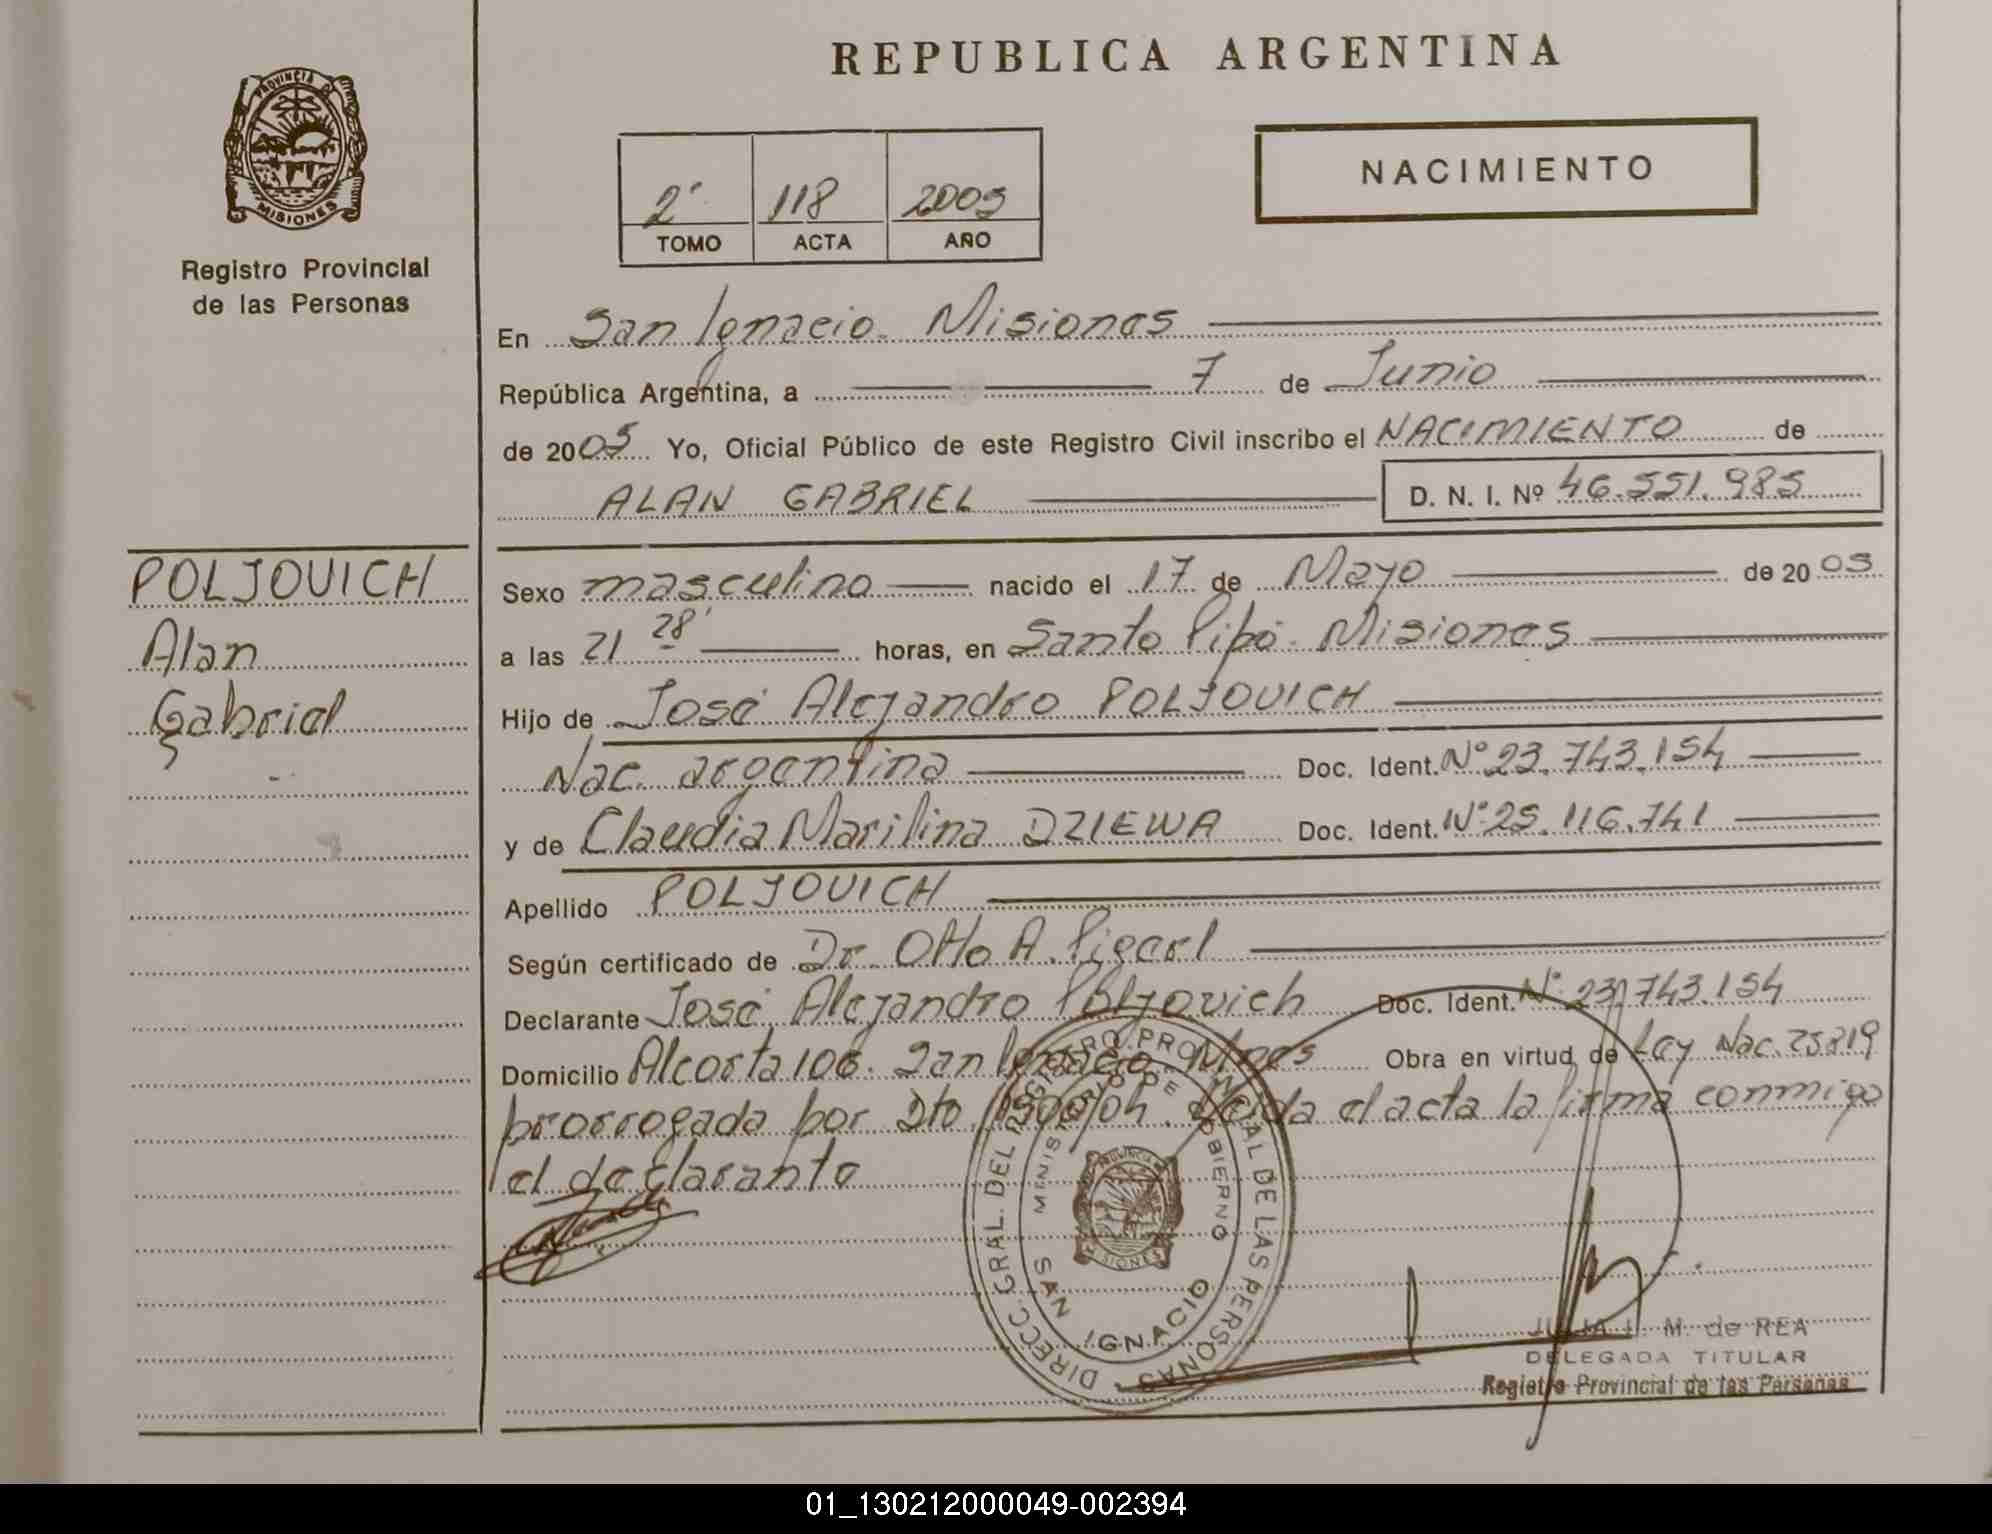 REPUBLICA ARGENTINA
PROVINCIA DE
MISIONES
Registro Provincial
de las Personas
2º 118 2005
TOMO ACTA AÑO
NACIMIENTO
En San Ignacio. Misiones
República Argentina, a 7 de Junio
de 2005 Yo, Oficial Público de este Registro Civil inscribo el NACIMIENTO de
ALAN GABRIEL D. N. I. Nº 46.551.985
POLJOVICH
Alan
Gabriel
Sexo masculino nacido el 17 de Mayo de 2005
a las 21 28' horas, en Santo Pipó. Misiones
Hijo de José Alejandro POLJOVICH
Nac. argentina Doc. Ident. Nº 23.743.154
y de Claudia Marilina DZIEWA Doc. Ident. Nº 25.116.741
Apellido POLJOVICH
Según certificado de Dr. Otto A.
Declarante José Alejandro Poljovich Doc. Ident. Nº 23.743.154
Domicilio Alcorta 106. San Ignacio. Mnes Obra en virtud de Ley Nac. 25819
prorrogada por Dto. el acta la firma conmigo
el declarante
DIRECC. GRAL. DEL REGISTRO PROVINCIAL DE LAS PERSONAS
MINISTERIO DE GOBIERNO
PROVINCIA
MISIONES
SAN IGNACIO
JULIA L. M. de REA
DELEGADA TITULAR
Registro Provincial de las Personas
01_130212000049-002394